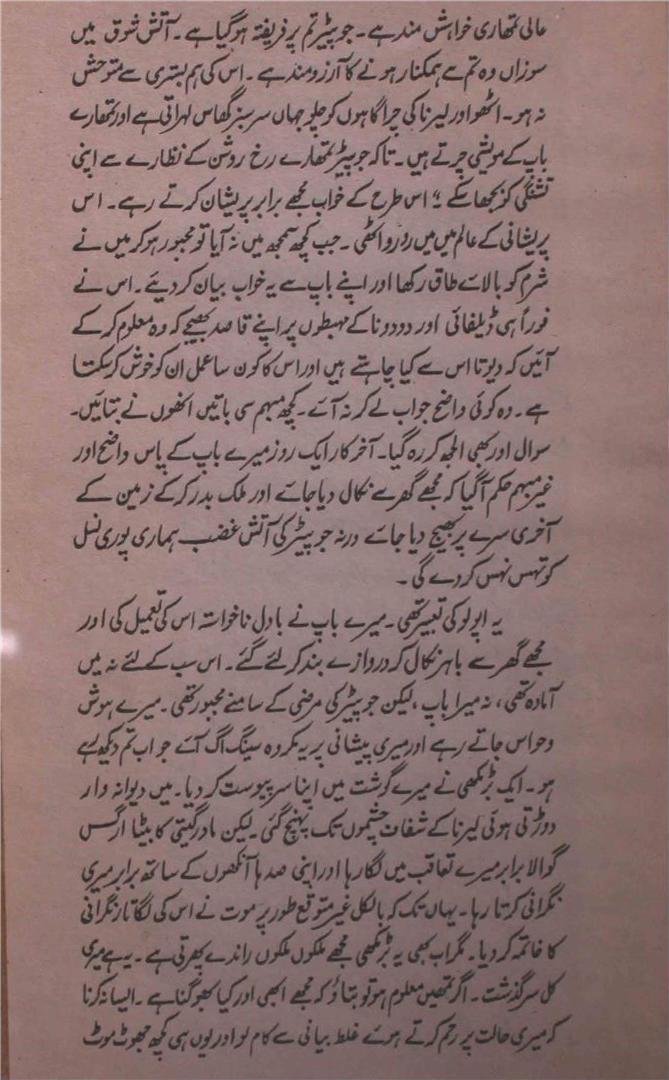 عالی تمھاری خواہش مند ہے۔ جوپیٹر تم پر فریفتہ ہو گیا ہے۔ آتش شوق میں
سوزاں وہ تم سے ہمکنار ہونے کا آرزومند ہے۔ اس کی ہم بستری سے متوحش
نہ ہو۔ اٹھو اور لیرنا کی چراگاہوں کو چلو جہاں سرسبز گھاس لہراتی ہے اور تمھارے
باپ کے مویشی چرتے ہیں۔ تاکہ جوپیٹر تمھارے رخ روشن کے نظارے سے اپنی
تشنگی کو بجھا سکے۔" اس طرح کے خواب مجھے برابر پریشان کرتے رہے۔ اس
پریشانی کے عالم میں میں رو رو اٹھی۔ جب کچھ سمجھ میں نہ آیا تو مجبور ہو کر میں نے
شرم کو بالائے طاق رکھا اور اپنے باپ سے یہ خواب بیان کر دیئے۔ اس نے
فوراً ہی ڈیلفائی اور دودونا کے مہبطوں پر اپنے قاصد بھیجے کہ وہ معلوم کر کے
آئیں کہ دیوتا اس سے کیا چاہتے ہیں اور اس کا کون سا عمل ان کو خوش کر سکتا
ہے۔ وہ کوئی واضح جواب لے کر نہ آئے۔ کچھ مبہم سی باتیں انھوں نے بتائیں۔
سوال اور بھی الجھ کر رہ گیا۔ آخر کار ایک روز میرے باپ کے پاس واضح اور
غیر مبہم حکم آ گیا کہ مجھے گھر سے نکال دیا جائے اور ملک بدر کر کے زمین کے
آخری سرے پر بھیج دیا جائے ورنہ جوپیٹر کی آتش غضب ہماری پوری نسل
کو تہس نہس کر دے گی۔
یہ اپولو کی تعبیر تھی۔ میرے باپ نے بادل ناخواستہ اس کی تعمیل کی اور
مجھے گھر سے باہر نکال کر دروازے بند کر لئے گئے۔ اس سب کے لئے نہ میں
آمادہ تھی، نہ میرا باپ، لیکن جوپیٹر کی مرضی کے سامنے مجبور تھی۔ میرے ہوش
وحواس جاتے رہے اور میری پیشانی پر یہ مکروہ سینگ اگ آئے جو اب تم دیکھ رہے
ہو۔ ایک بڑ مکھی نے میرے گوشت میں اپنا سر پیوست کر دیا۔ میں دیوانہ وار
دوڑتی ہوئی لیرنا کے شفاف چشموں تک پہنچ گئی۔ لیکن مادر گیتی کا بیٹا ارگس
گوالا برابر میرے تعاقب میں لگا رہا اور اپنی صدہا آنکھوں کے ساتھ برابر میری
نگرانی کرتا رہا۔ یہاں تک کہ بالکل غیر متوقع طور پر موت نے اس کی لگاتار نگرانی
کا خاتمہ کر دیا۔ مگر اب بھی یہ بڑ مکھی مجھے ملکوں ملکوں راندے پھرتی ہے۔ یہ ہے میری
کل سرگذشت۔ اگر تمھیں معلوم ہو تو بتاؤ کہ مجھے ابھی اور کیا کیا بھوگنا ہے۔ ایسا نہ کرنا
کہ میری حالت پر رحم کرتے ہوئے غلط بیانی سے کام لو اور یوں ہی کچھ جھوٹ موٹ